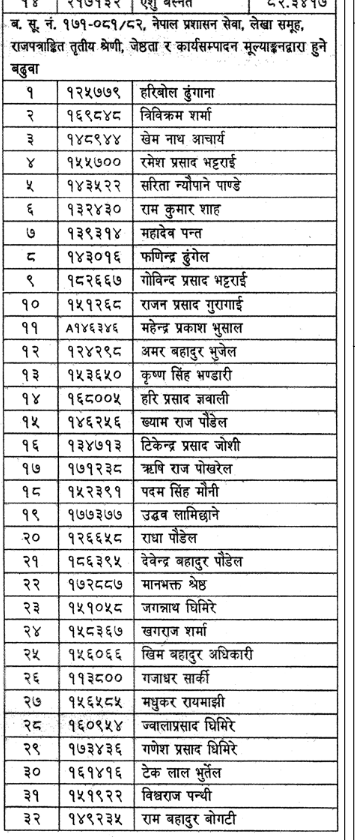 १४ २१७१३२ एशु बस्नेत ८२.३४१७
ब. सू. नं. १७१-०८१/८२, नेपाल प्रशासन सेवा, लेखा समूह,
राजपत्राङ्कित तृतीय श्रेणी, जेष्ठता र कार्यसम्पादन मूल्याङ्कनद्वारा हुने
बढुवा
१ १२५७७९ हरिबोल ढुंगाना
२ १६९८४८ त्रिविक्रम शर्मा
३ १४८९४४ खेम नाथ आचार्य
४ १५५७०० रमेश प्रसाद भट्टराई
५ १४३५२२ सरिता न्यौपाने पाण्डे
६ १३२४३० राम कुमार शाह
७ १३९३१४ महादेव पन्त
८ १४३०१६ फणिन्द्र ढुंगेल
९ १८२६६७ गोविन्द प्रसाद भट्टराई
१० १५१२६८ राजन प्रसाद गुरागाई
११ A१४६३४६ महेन्द्र प्रकाश भुसाल
१२ १२४२९८ अमर बहादुर भुजेल
१३ १५३६५० कृष्ण सिंह भण्डारी
१४ १६८००५ हरि प्रसाद ज्ञवाली
१५ १४६२५६ ख्याम राज पौडेल
१६ १३४७१३ टिकेन्द्र प्रसाद जोशी
१७ १७१२३८ ऋषि राज पोखरेल
१८ १५२३९१ पदम सिंह मौनी
१९ १७७३७७ उद्धव लामिछाने
२० १२६६५८ राधा पौडेल
२१ १८६३९५ देवेन्द्र बहादुर पौडेल
२२ १७२८८७ मानभक्त श्रेष्ठ
२३ १५१०५८ जगन्नाथ घिमिरे
२४ १५८३६७ खगराज शर्मा
२५ १५६०६६ खिम बहादुर अधिकारी
२६ ११३८०० गजाधर सार्की
२७ १५६५८५ मधुकर रायमाझी
२८ १६०९५४ ज्वालाप्रसाद घिमिरे
२९ १७३४३६ गणेश प्रसाद घिमिरे
३० १६१४१६ टेक लाल भुर्तेल
३१ १५१९२२ विश्वराज पन्थी
३२ १४९२३५ राम बहादुर बोगटी